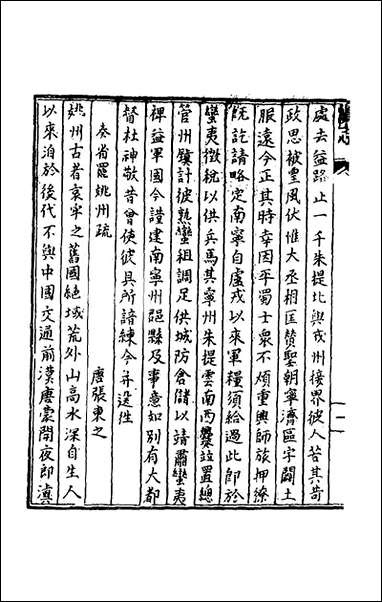 處去益路止一千朱提北與戎州接界彼人苦其苛
政思被皇風伏惟大丞相匡贊聖朝寧濟區宇闢土
服遠今正其時幸因平蜀士衆不煩重興師旅押獠
既訖請略定南寧自盧戎以來軍糧須給過此即於
蠻夷徵稅以供兵馬其寧州朱提雲南西爨並置總
管州鎮計彼熟蠻組調足供城防倉儲以靖肅蠻夷
裨益軍國今諎建南寧州郡縣及事意如別有大都
督杜神敬昔曾使彼具所諳練今并送往
奏省罷姚州疏
唐張柬之
姚州古者哀牢之舊國絕域荒外山高水深自生人
以來洎於後代不與中國交通前漢唐蒙開夜郎滇